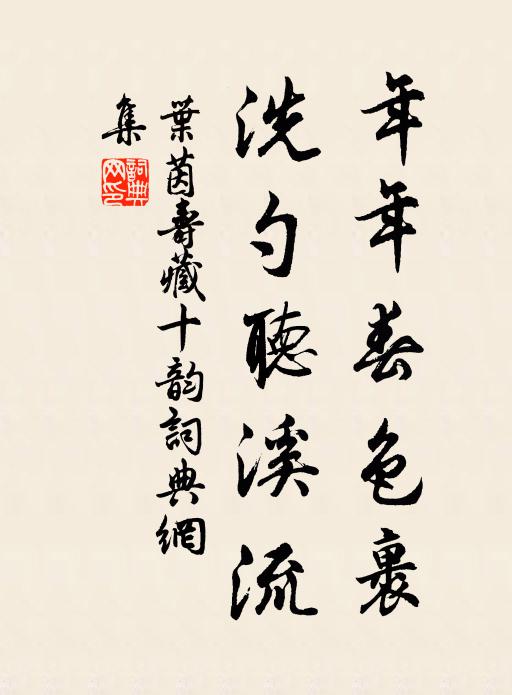 年年春色裏
洗勺聽溪流
葉茵壽藏十韵詞典網
集
詞典
网印